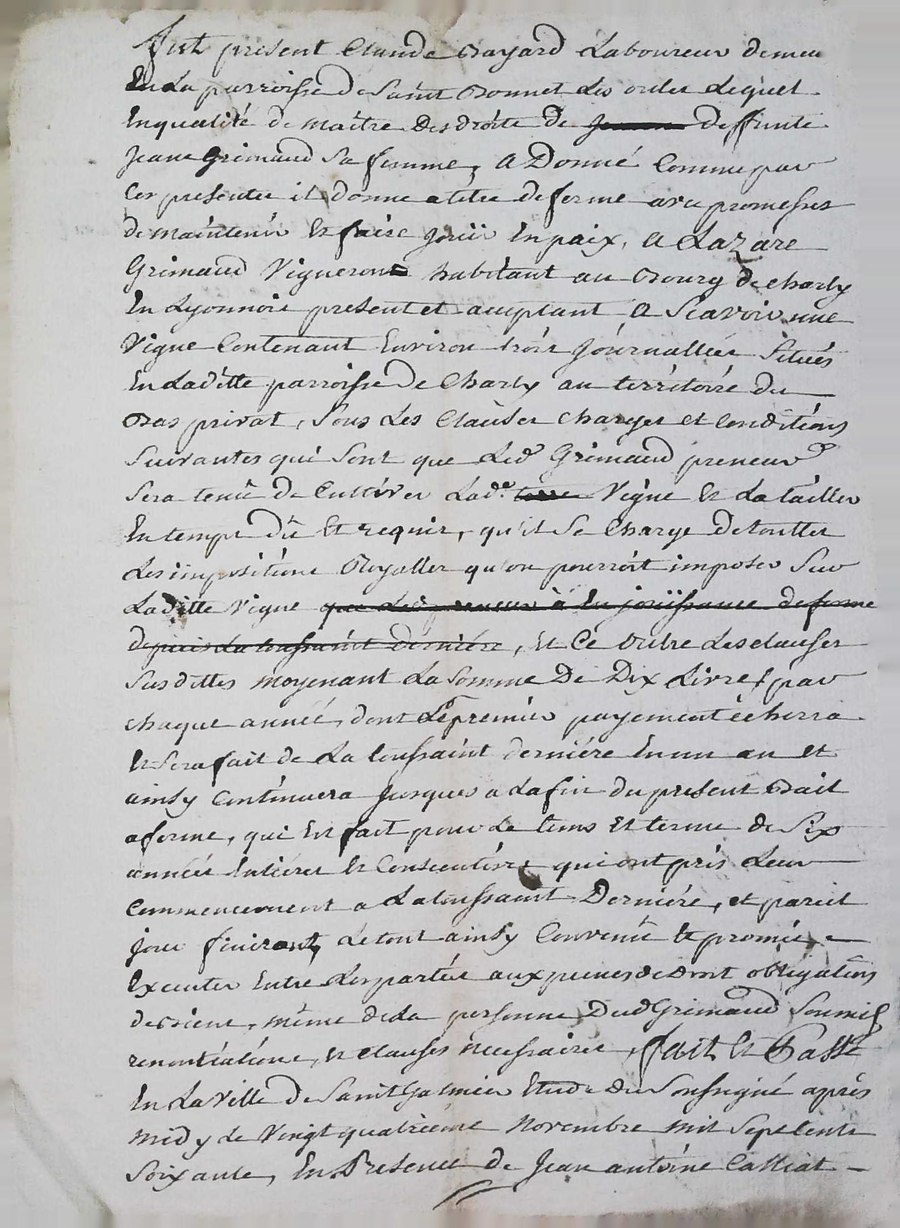 Fut present Claude Bayard Laboureur demeu
En La parroisse de Saint Bonnet Les oules Lequel
En qualité de maitre des droits de Jeanne deffunte
Jeane Grimaud Sa femme, a Donné Comme par
Ces presentes il donne a titre de ferme avec promesses
de maintenir Et faire joüir En paix, a Lazare
Grimaud Vigneron habitant au Bourg de Charly
En Lyonnois present et acceptant a Scavoir une
Vigne Contenant Environ trois journallées Situés
En Laditte parroisse de Charly au territoire du
Bas privat, Sous Les Clauses charges et conditions
Suivantes qui Sont que Led. Grimaud preneur
Sera tenû de Cultiver Lad.e terre Vigne Et La tailler
En temps dû Et requis, qu'il Se Charge de touttes
Les impositions Royalles qu'on pourroit imposer Sur
Laditte Vigne que Led preneur à En joüissance de ferme
depuis La toussaint derniére, Et Ce outre Les clauses
Susdittes moyenant La Somme De Dix Livres par
chaque année, dont Le premier payement écherra
Et Sera fait de La toussaint derniére En un an et
ainsy Continuera jusques a La fin du present Bail
a ferme, qui Est fait pour Le tems Et terme de Six
années Entieres Et Consecutives qui ont pris Leur
Commencement a La toussaint Derniére, et pareil
jour finiront, Le tout ainsy Convenû Et promis
Executer Entre Les parties aux peines de Droit obligations
de biens, même de La personne Dud Grimaud Soumis
renontiations, et clauses necessaires, fait Et Passé
En La Ville de Saint Galmier Etude du Soussigné après
midy de Vingt quatrieme Novembre mil Sept Cents
Soixante, En Presence de Jean antoine Calliat